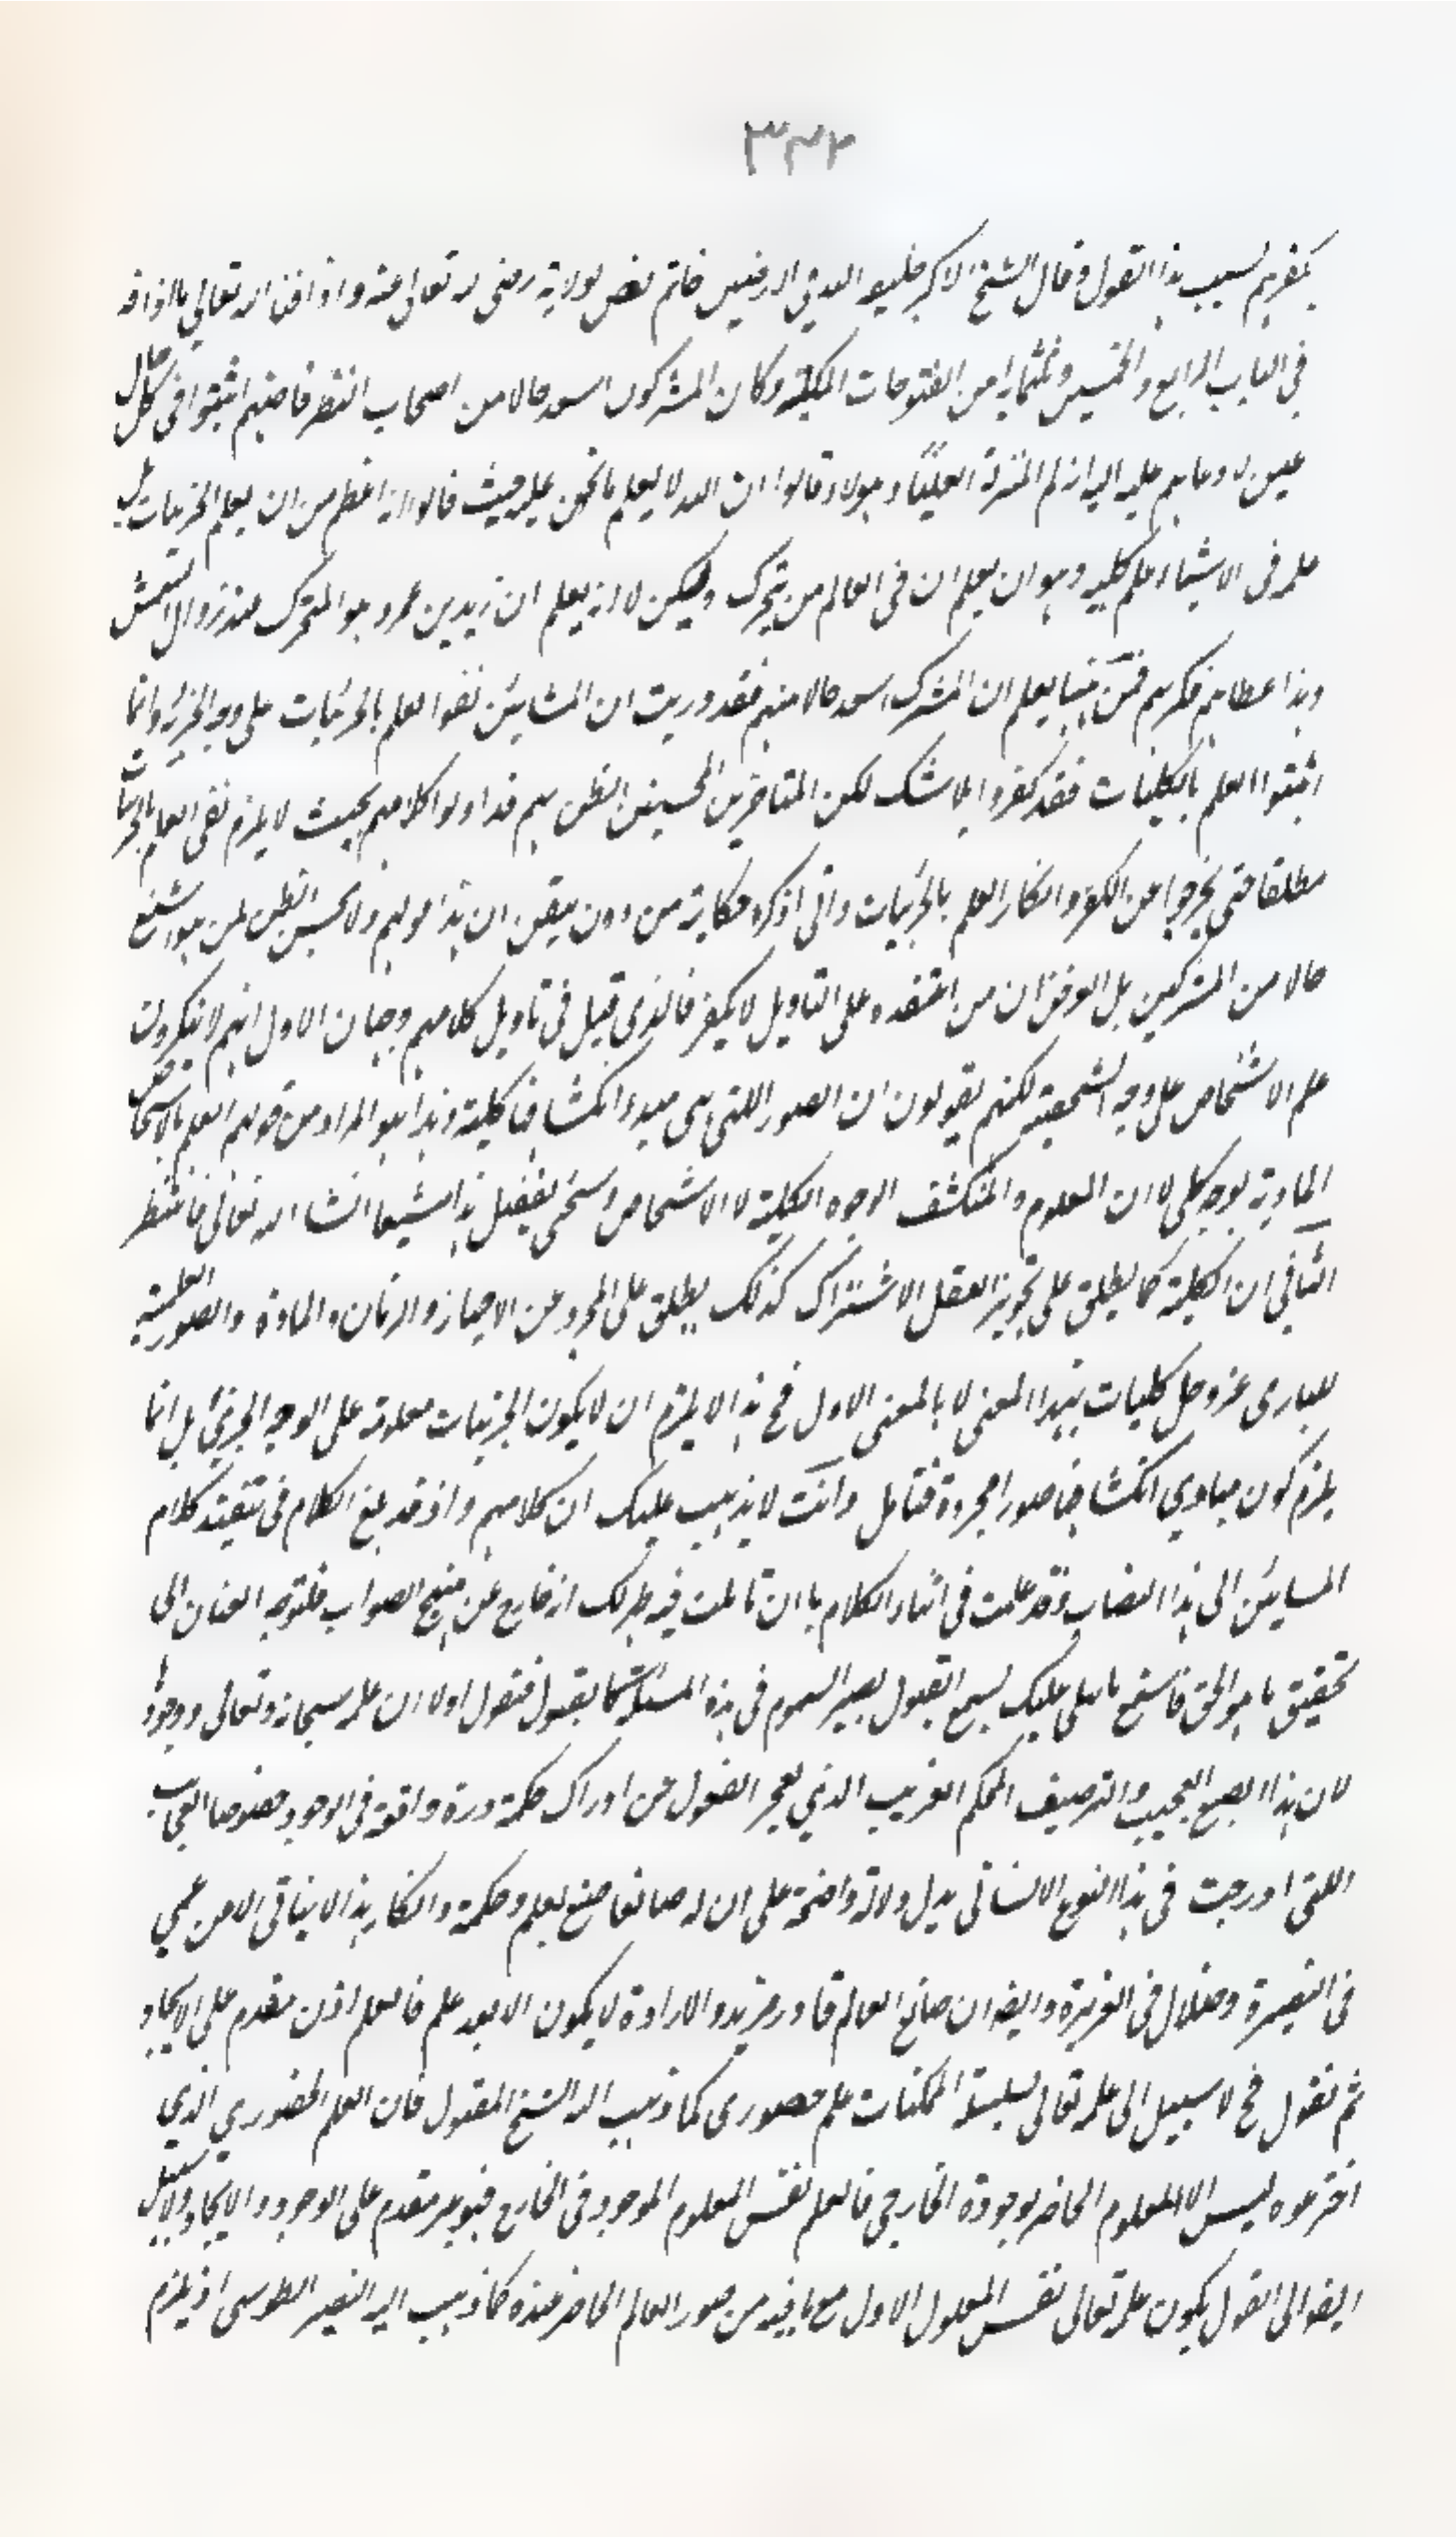 ٣٣٢
يكفرهم بسبب هذا القول وقال الشيخ الاكبر خليفة الله في الارضين خاتم فص الولاية رضى الله تعالى عنه واذاقنا الله تعالى ما اذاقه
فى الباب الرابع والخمسين وثلثماية من الفتوحات المكية وكان المشركون اسعد حالا من اصحاب النظر فانهم اثبتوا فى كل حال
عين لا وعابهم عليه اليه ازلهم المنزلة العليا وهولاء قالوا ان الله لا يعلم ما نحن عليه حيث قالوا انه اعظم من ان يعلم الجزئيات بل
علمه فى الاشياء علم كلية وهو ان يعلم ان فى العالم من يتحرك ويسكن لا انه يعلم ان زيد بن عمرو هو المتحرك عند زوال الشمس
وهذا عطاهم فكرهم فمن ههنا يعلم ان المشرك اسعد حالا منهم فقد دريت ان المشائين نفوا العلم بالجزئيات على وجه الجزئية وانما
اثبتوا العلم بالكليات فقد كفروا بلا شك لكن المتاخرين المحسنين الظن بهم قد اولوا كلامهم بحيث لا يلزم نفى العلم بالجزئيات
مطلقا حتى يخرجوا عن الكفر وانكار العلم بالجزئيات وانى اذكره حكاية من دون تيقن ان هذا قولهم ولا نحسن الظن لمن هو اشنع
حالا من المشركين بل العرفان من اعتقده على التاويل لا يكفر فالذى قيل فى تاويل كلامهم وجهان الاول انهم لا ينكرون
علم الاشخاص على وجه الشخصية لكنهم يقولون ان الصور اللتى هى مبدء انكشافها كلية وهذا هو المراد من قولهم العلم بالاشخاص
المادية بوجه كلى لا ان المعلوم والمنكشف الوجوه الكلية لا الاشخاص وسيجئ تفصيل هذا مشبعا انشاء الله تعالى فانتظر
الثانى ان الكلية كما يطلق على تجويز العقل الاشتراك كذلك يطلق على المجرد عن الاحياز والزمان والمادة والصور العلمية
للبارى عز وجل كليات بهذا المعنى لا بالمعنى الاول فح هذا لا يلزم ان لا يكون الجزئيات معلومة على الوجه الجزئى بل انما
يلزم كون مبادي انكشافها صورا مجردة فتامل وانت لا يذهب عليك ان كلامهم واذ قد بلغ الكلام فى تنقيد كلام
المشائين الى هذا النصاب وقد علمت فى اثناء الكلام ما ان تاملت فيه ظهر لك انه خارج عن منهج الصواب فلنوجه العنان الى
تحقيق ما هو الحق فاستمع ما يتلى عليك بسمع القبول بصير السموم فى هذه المسئلة كما بقبول فنقول اولا ان علمه سبحانه وتعالى ووجوده
لان هذا الصنع العجيب والترصيف المحكم الغريب الذي يعجز العقول عن ادراك حكمة ذرة واقعة فى الوجود خصوصا العجائب
اللتى ادرجت فى هذا النوع الانسانى يدل دلالة واضحة على ان له صانعا صنع بعلم وحكمة وانكار هذا لا يتاتى الا عن عمي
فى البصيرة وضلال فى الغريزة وايضا ان صانع العالم قادر مريد والارادة لا يكون الا بعد علم فالعلم اذن مقدم على الايجاد
ثم نقول فح لا سبيل الى علمه تعالى بسلسلة الممكنات علم حضورى كما ذهب اليه الشيخ المقتول فان العلم الحضوري الذي
اخترعوه ليس الا المعلوم الحاضر بوجوده الخارجى فالعلم نفس المعلوم الموجود فى الخارج فهو غير مقدم على الوجود والايجاد ولا سبيل
ايضا الى القول بكون علمه تعالى نفس المعلول الاول مع ما فيه من صور العالم الحاضر عنده كما ذهب اليه النصير الطوسى اذ يلزم